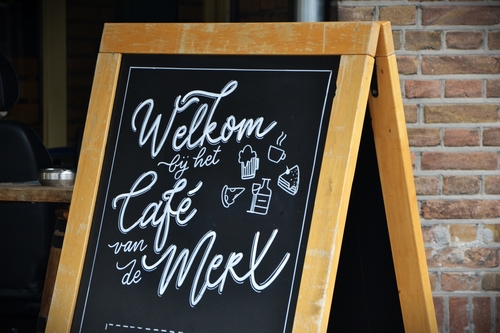 Welkom
bij het
Café
van
de
Merx